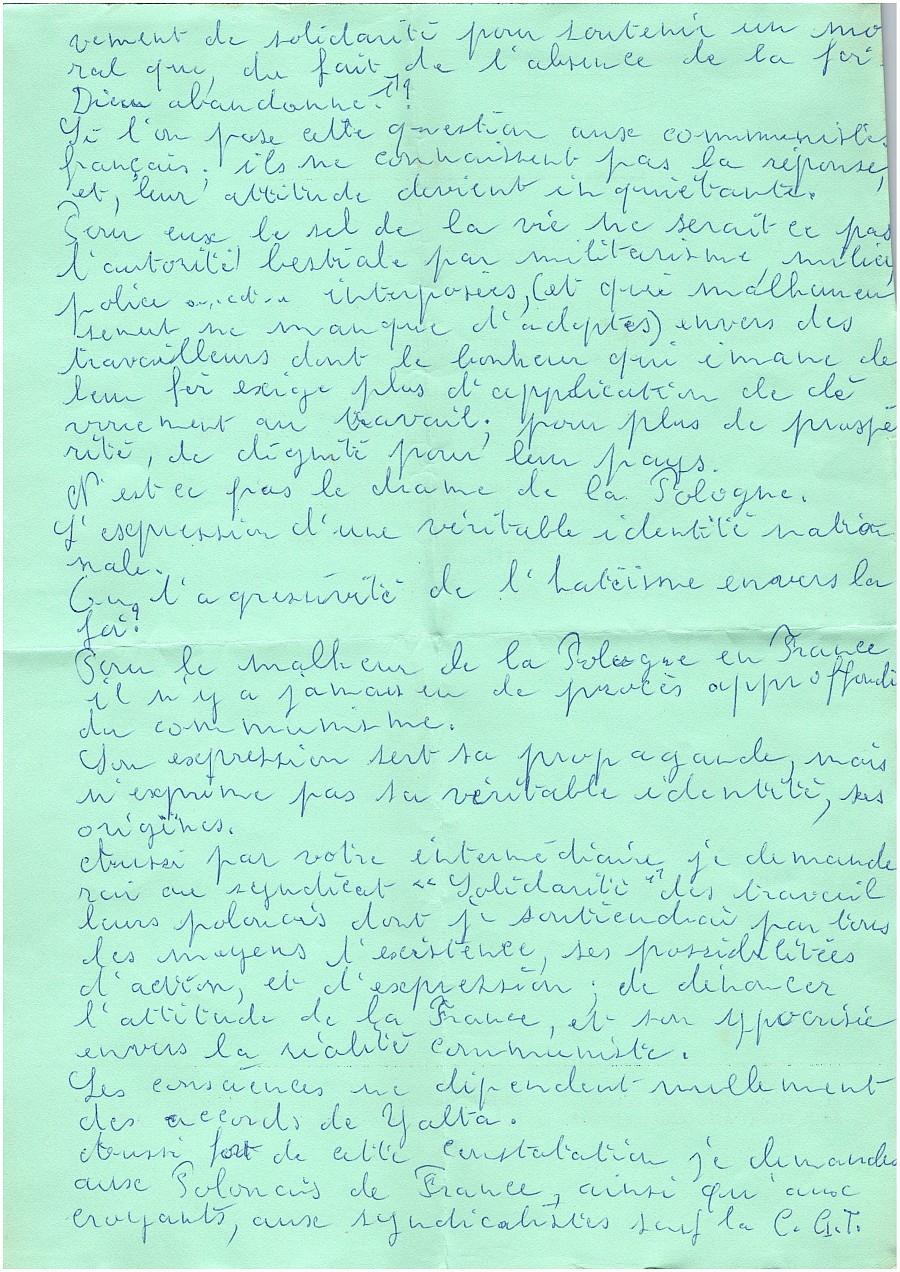 vement de solidarité pour soutenir un mo
ral que, du fait de l'absence de la foi
Dieu abandonne"?
Si l'on pose cette question aux communistes
français; ils ne connaissent pas la réponse,
et, leur attitude devient inquiétante.
Pour eux le sel de la vie ne serait ce pas
l'autorité bestiale par militarisme, milice,
police interposées, (et qui malheureu
sement ne manque d'adeptes) envers des
travailleurs dont le bonheur qui émane de
leur foi exige plus d'application de dé
vouement au travail; pour plus de prospé
rité, de dignité pour leur pays.
N'est ce pas le drame de la Pologne.
L'expression d'une véritable identité natio
nale.
Ou, l'agressivité de l'hatéisme envers la
foi?
Pour le malheur de la Pologne en France
il n'y a jamais eu de procès approffondi
du communisme.
Son expression sert sa propagande, mais
n'exprime pas sa véritable identité, ses
origines.
Aussi par votre intermédiaire je demande
rai au syndicat "Solidarité" des travail
leurs polonais dont je soutiendrai par tous
les moyens l'existence, ses possibilitées
d'action, et d'expression; de dénoncer
l'attitude de la France, et son ypocrisie
envers la réalité communiste.
Les consciences ne dépendent nullement
des accords de Yalta.
Aussi fort de cette constatation je demande
aux Polonais de France, ainsi qu'aux
croyants, aux syndicalistes sauf la C.G.T.